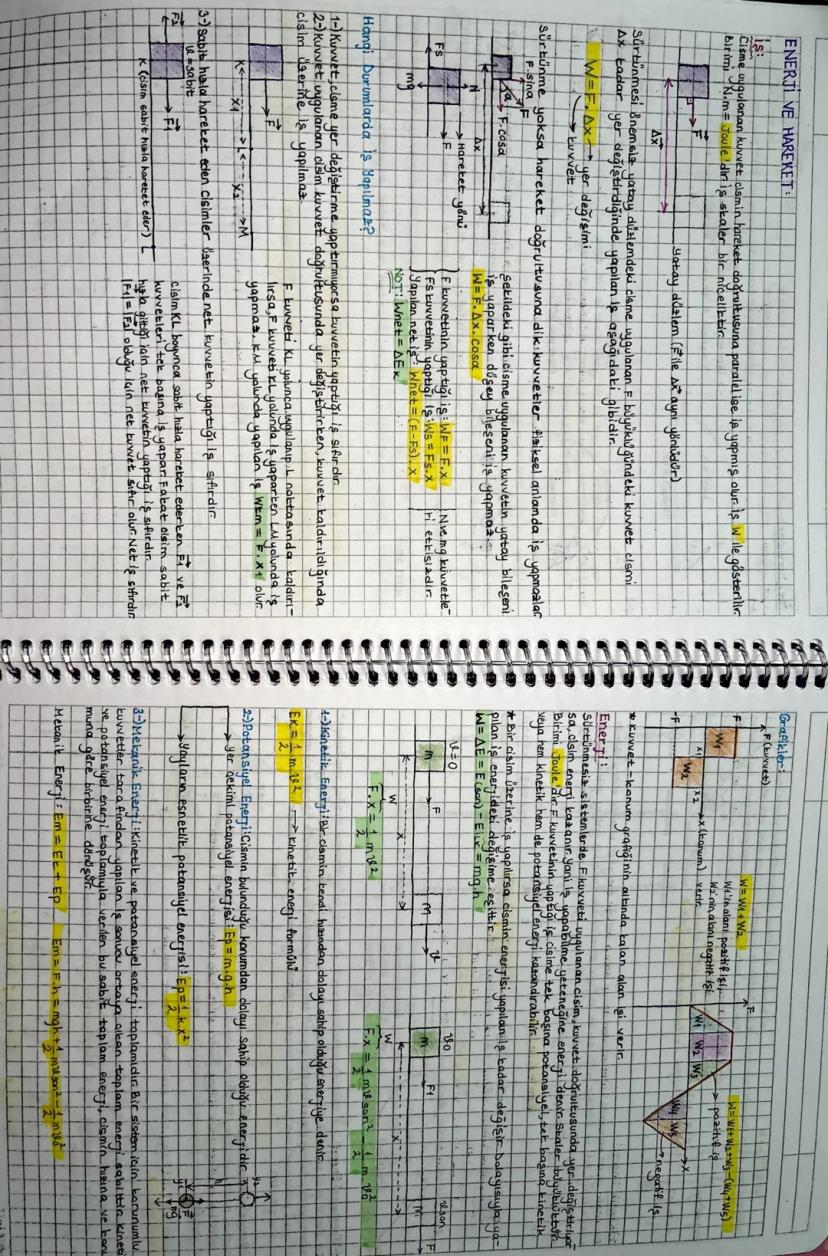 ENERJİ VE HAREKET:
İş:
Cisme uygulanan kuvvet cismin hareket doğrultusuna paralel ise iş yapmış olur. İş W ile gösterilir.
Birimi N.m = Joule'dir. İş skaler bir niceliktir.
F
Δx
yatay düzlem (F ile Δx aynı yönlüdür)
Sürtünmesi önemsiz yatay düzlemdeki cisme uygulanan F büyüklüğündeki kuvvet cismi
Δx kadar yer değiştirdiğinde yapılan iş aşağıdaki gibidir.
W = F. Δx → yer değişimi
→ kuvvet
Sürtünme yoksa hareket doğrultusuna dik kuvvetler fiziksel anlamda iş yapmazlar
F.sinα
F
α
F.cosα
Δx
Şekildeki gibi cisme uygulanan kuvvetin yatay bileşeni
iş yaparken düşey bileşeni iş yapmaz.
W = F. Δx. cosα
→ Hareket yönü
N
F
Fs
mg
F kuvvetinin yaptığı iş: WF = F.x
Fs kuvvetinin yaptığı iş: Ws = Fs.x
Yapılan net iş: Wnet = (F-Fs).x
NOT: Wnet = ΔEk
N ve mg kuvvetle-
ri etkisizdir.
Hangi Durumlarda İş Yapılmaz?
1-) Kuvvet, cisme yer değiştirme yaptırmıyorsa kuvvetin yaptığı iş sıfırdır.
2-) Kuvvet uygulanan cisim kuvvet doğrultusunda yer değiştirirken, kuvvet kaldırıldığında
cisim üzerine iş yapılmaz.
F
K X1 L X2 M
F kuvveti KL yolunca uygulanıp L noktasında kaldırı-
lırsa, F kuvveti KL yolunda iş yaparken LM yolunda iş
yapmaz. KM yolunda yapılan iş Wkm = F.X1 olur.
3-) Sabit hızla hareket eden cisimler üzerinde net kuvvetin yaptığı iş sıfırdır.
F2
ϑ = sabit
F1
K (cisim sabit hızla hareket eder) L
cisim KL boyunca sabit hızla hareket ederken F1 ve F2
kuvvetleri tek başına iş yapar. Fakat cisim sabit
hızla gittiği için net kuvvetin yaptığı iş sıfırdır.
|F1| = |F2| olduğu için net kuvvet sıfır olur. Net iş sıfırdır
Grafikler:
F (kuvvet)
F
W1
x1
W2
x2
x (konum)
-F
W = W1 + W2
W1'in alanı pozitif işi,
W2'nin alanı negatif işi
verir.
F
W1 W2 W3
W4 W5
x
pozitif iş
negatif iş
W = W1+W2+W3-(W4+W5)
* Kuvvet - konum grafiğinin altında kalan alan işi verir.
Enerji:
Sürtünmesiz sistemlerde F kuvveti uygulanan cisim, kuvvet doğrultusunda yer değiştiriyor-
sa, cisim enerji kazanır. Yani iş yapabilme yeteneğine enerji denir. Skaler büyüklüktür.
Birimi Joule'dir. F kuvvetinin yaptığı iş cisime tek başına potansiyel, tek başına kinetik
veya hem kinetik hem de potansiyel enerji kazandırabilir.
* Bir cisim üzerine iş yapılırsa cismin enerjisi yapılan iş kadar değişir. Dolayısıyla ya-
pılan iş enerjideki değişime eşittir.
W = ΔE = E(son) - E ilk = mg.h
ϑ=0
m
F
m
ϑ
x
W
F.x = 1/2 m ϑ²
ϑ0
m
F1
m
ϑson
F
x
W
F.x = 1/2 mϑson² - 1/2 m.ϑ0²
1-) Kinetik Enerji: Bir cismin kendi hızından dolayı sahip olduğu enerjiye denir.
Ek = 1/2 m.ϑ² → kinetik enerji formülü
2-) Potansiyel Enerji: Cismin bulunduğu konumdan dolayı sahip olduğu enerjidir.
→ yer çekimi potansiyel enerjisi: Ep = m.g.h
→ Yayların esneklik potansiyel enerjisi: Ep = 1/2 k.x²
h
F
mg
3-) Mekanik Enerji: Kinetik ve potansiyel enerji toplamıdır. Bir sistem için korunumlu
kuvvetler tarafından yapılan iş sonucu ortaya çıkan toplam enerji sabittir. Kineti
ve potansiyel enerji toplamıyla verilen bu sabit toplam enerji, cismin hızına ve kon
muna göre birbirine dönüşür.
Mekanik Enerji: Em = Ek + Ep Em = F.h = mgh + 1/2 mϑson² - 1/2 mϑ0²